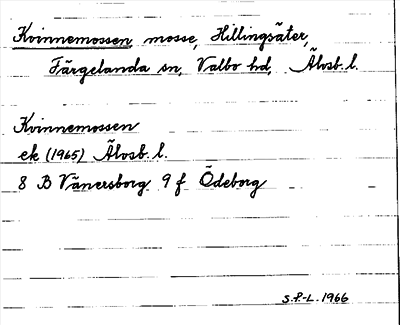 Kvinnemossen, mosse, Hillingsäter,
Färgelanda sn, Valbo hd, Älvsb. l.
Kvinnemossen
ek (1965) Älvsb. l.
8 B Vänersborg 9 f Ödeborg
S.F-L. 1966